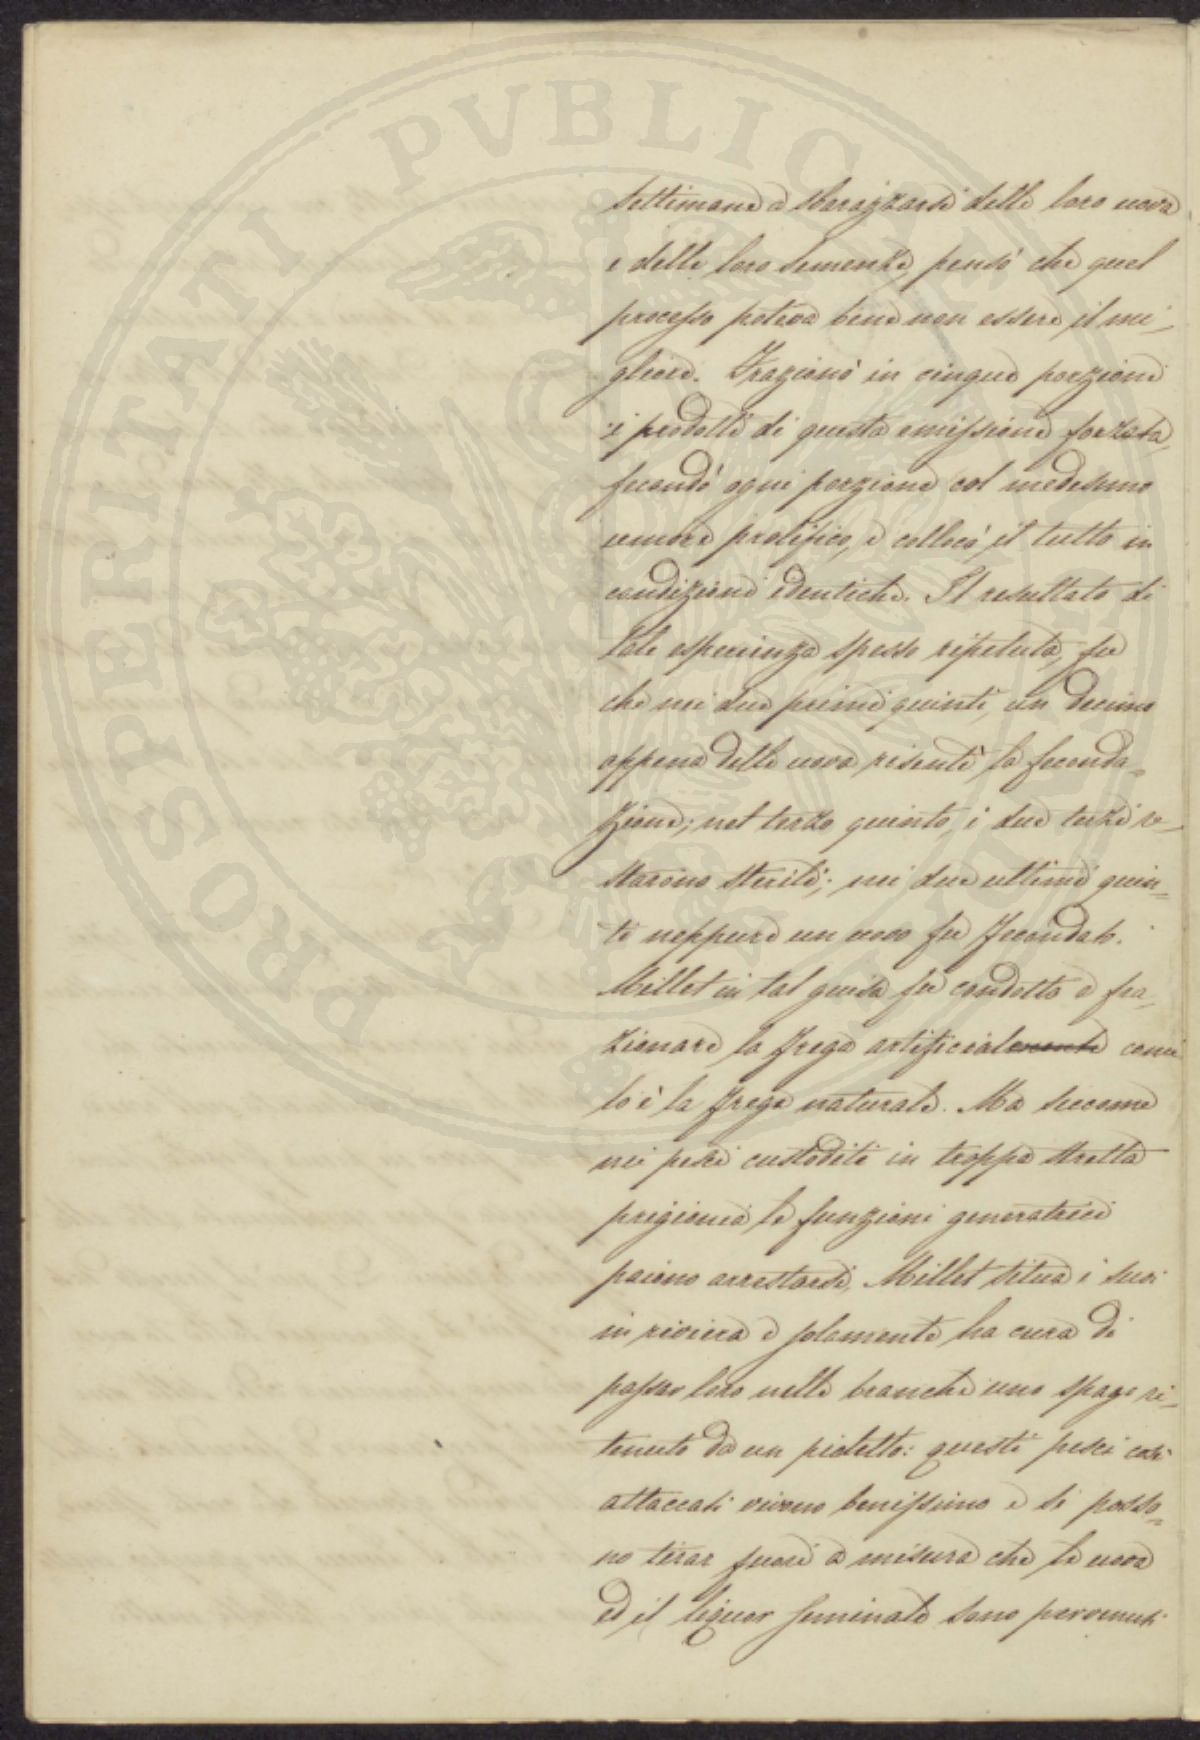 settimane a sbarazzarsi delle loro uova
e delle loro semenze, pensò che quel
processo poteva bene non essere il mi-
gliore. Frazionò in cinque porzioni
i prodotti di questa emissione forzata,
fecondò ogni porzione col medesimo
umore prolifico, e collocò il tutto in
condizioni identiche. Il resultato di
tale esperienza spesso ripetuta, fu
che nei due primi quinti, un decimo
appena delle uova risentì la feconda-
zione; nel terzo quinto, i due terzi re-
starono sterili; nei due ultimi quin-
ti neppure un uovo fu fecondato.
Millet in tal guisa fu condotto a fra-
zionare la frega artificialmente come
lo è la frega naturale. Ma siccome
nei pesci custoditi in troppo stretta
prigionia le funzioni generatrici
paiono arrestarsi, Millet situa i suoi
in riviera e solamente ha cura di
passar loro nelle branchie uno spago ri-
tenuto da un pioletto: questi pesci così
attaccati vivono benissimo e si posso-
no tirar fuori a misura che le uova
ed il liquor seminale sono pervenuti
PROSPERITATI PVBLICAE